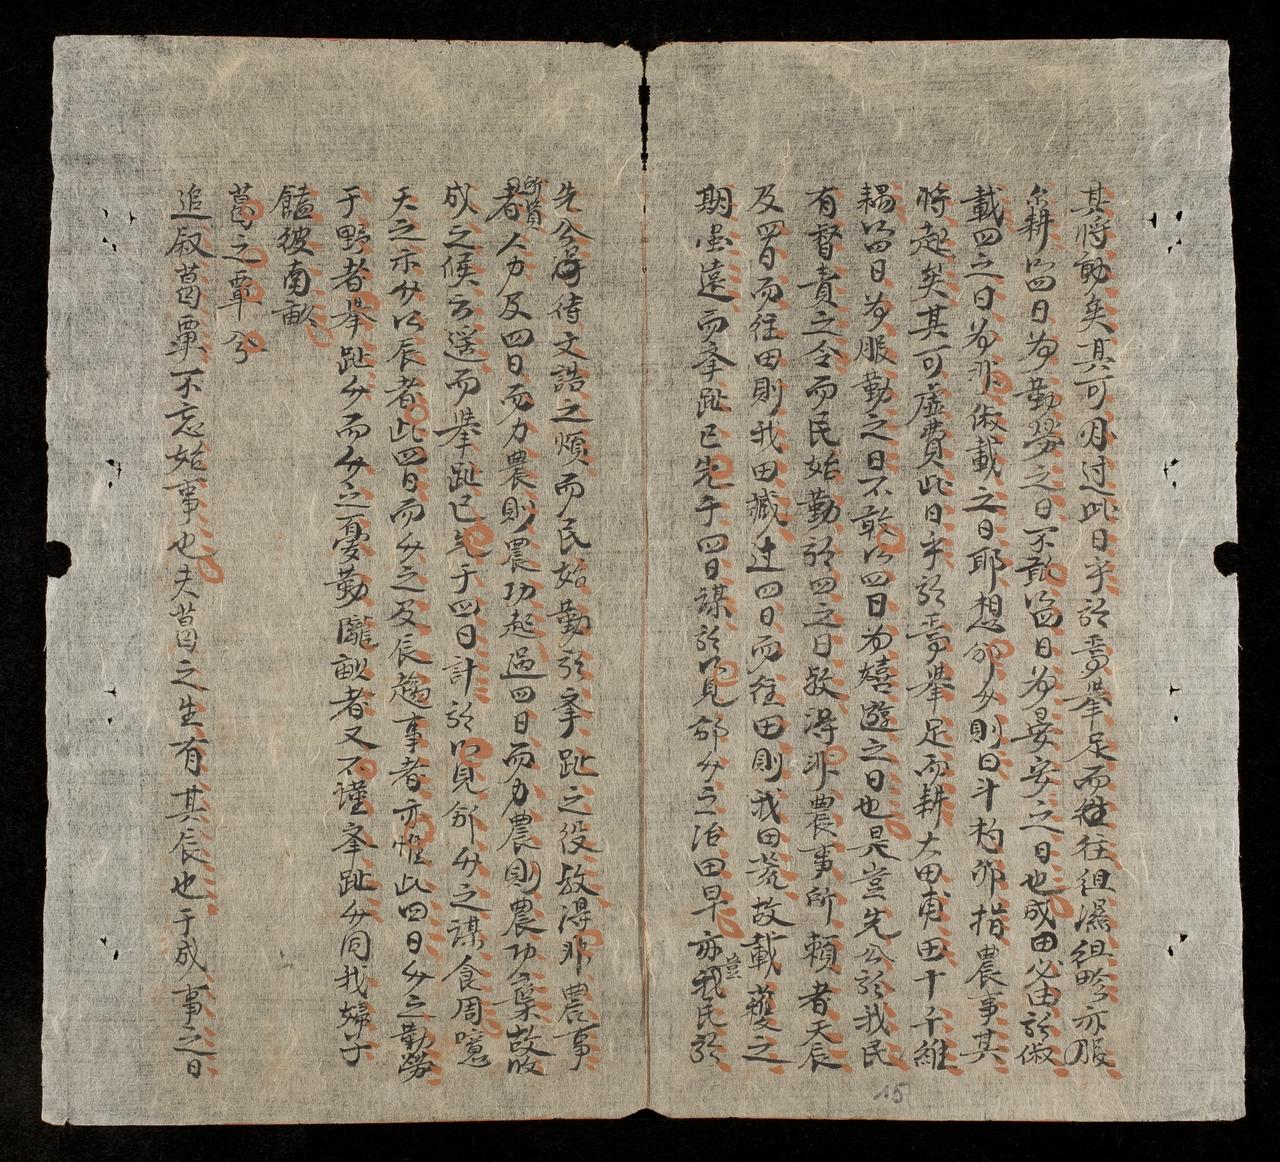 其將動矣其可用过此日乎於焉舉足而往徂濕徂畛亦服
尔耕以四日为勤勞之日不敢以四日为晏安之日也成田必由於俶
載四之日为非俶載之日耶想郤勿則曰斗杓卯指農事其
將起矣其可虛費此日乎於焉舉足而耕大田甫田十千維
耦以四日为服勤之日不敢以四日为嬉遊之日也是豈先公於我民
有督責之令而民始勤於四之日敖得非農事所賴者天辰
及四日而往田則我田臧过四日而往田則我田荒故載蘉之
期虽遠而夆趾已先于四日謀於以見郤勿之治田早亦豈我民於
先公得待文誥之煩而民始勤於夆趾之役敖得非農事
所貲者人力及四日而力農則農功起過四日而力農則農功棄故收
成之候方遥而舉趾已先于四日計於以見郤勿之謀食周噫
天之示勿以辰者此四日而勿之及辰趨事者亦惟此四日勿之勤勞
于野者舉趾勿而勿之憂勤隴畝者又不謹夆趾勿同我婦子
饁彼南畝
葛之覃兮
追叙葛覃不忘始事也夫葛之生有其辰也于成事之日
15